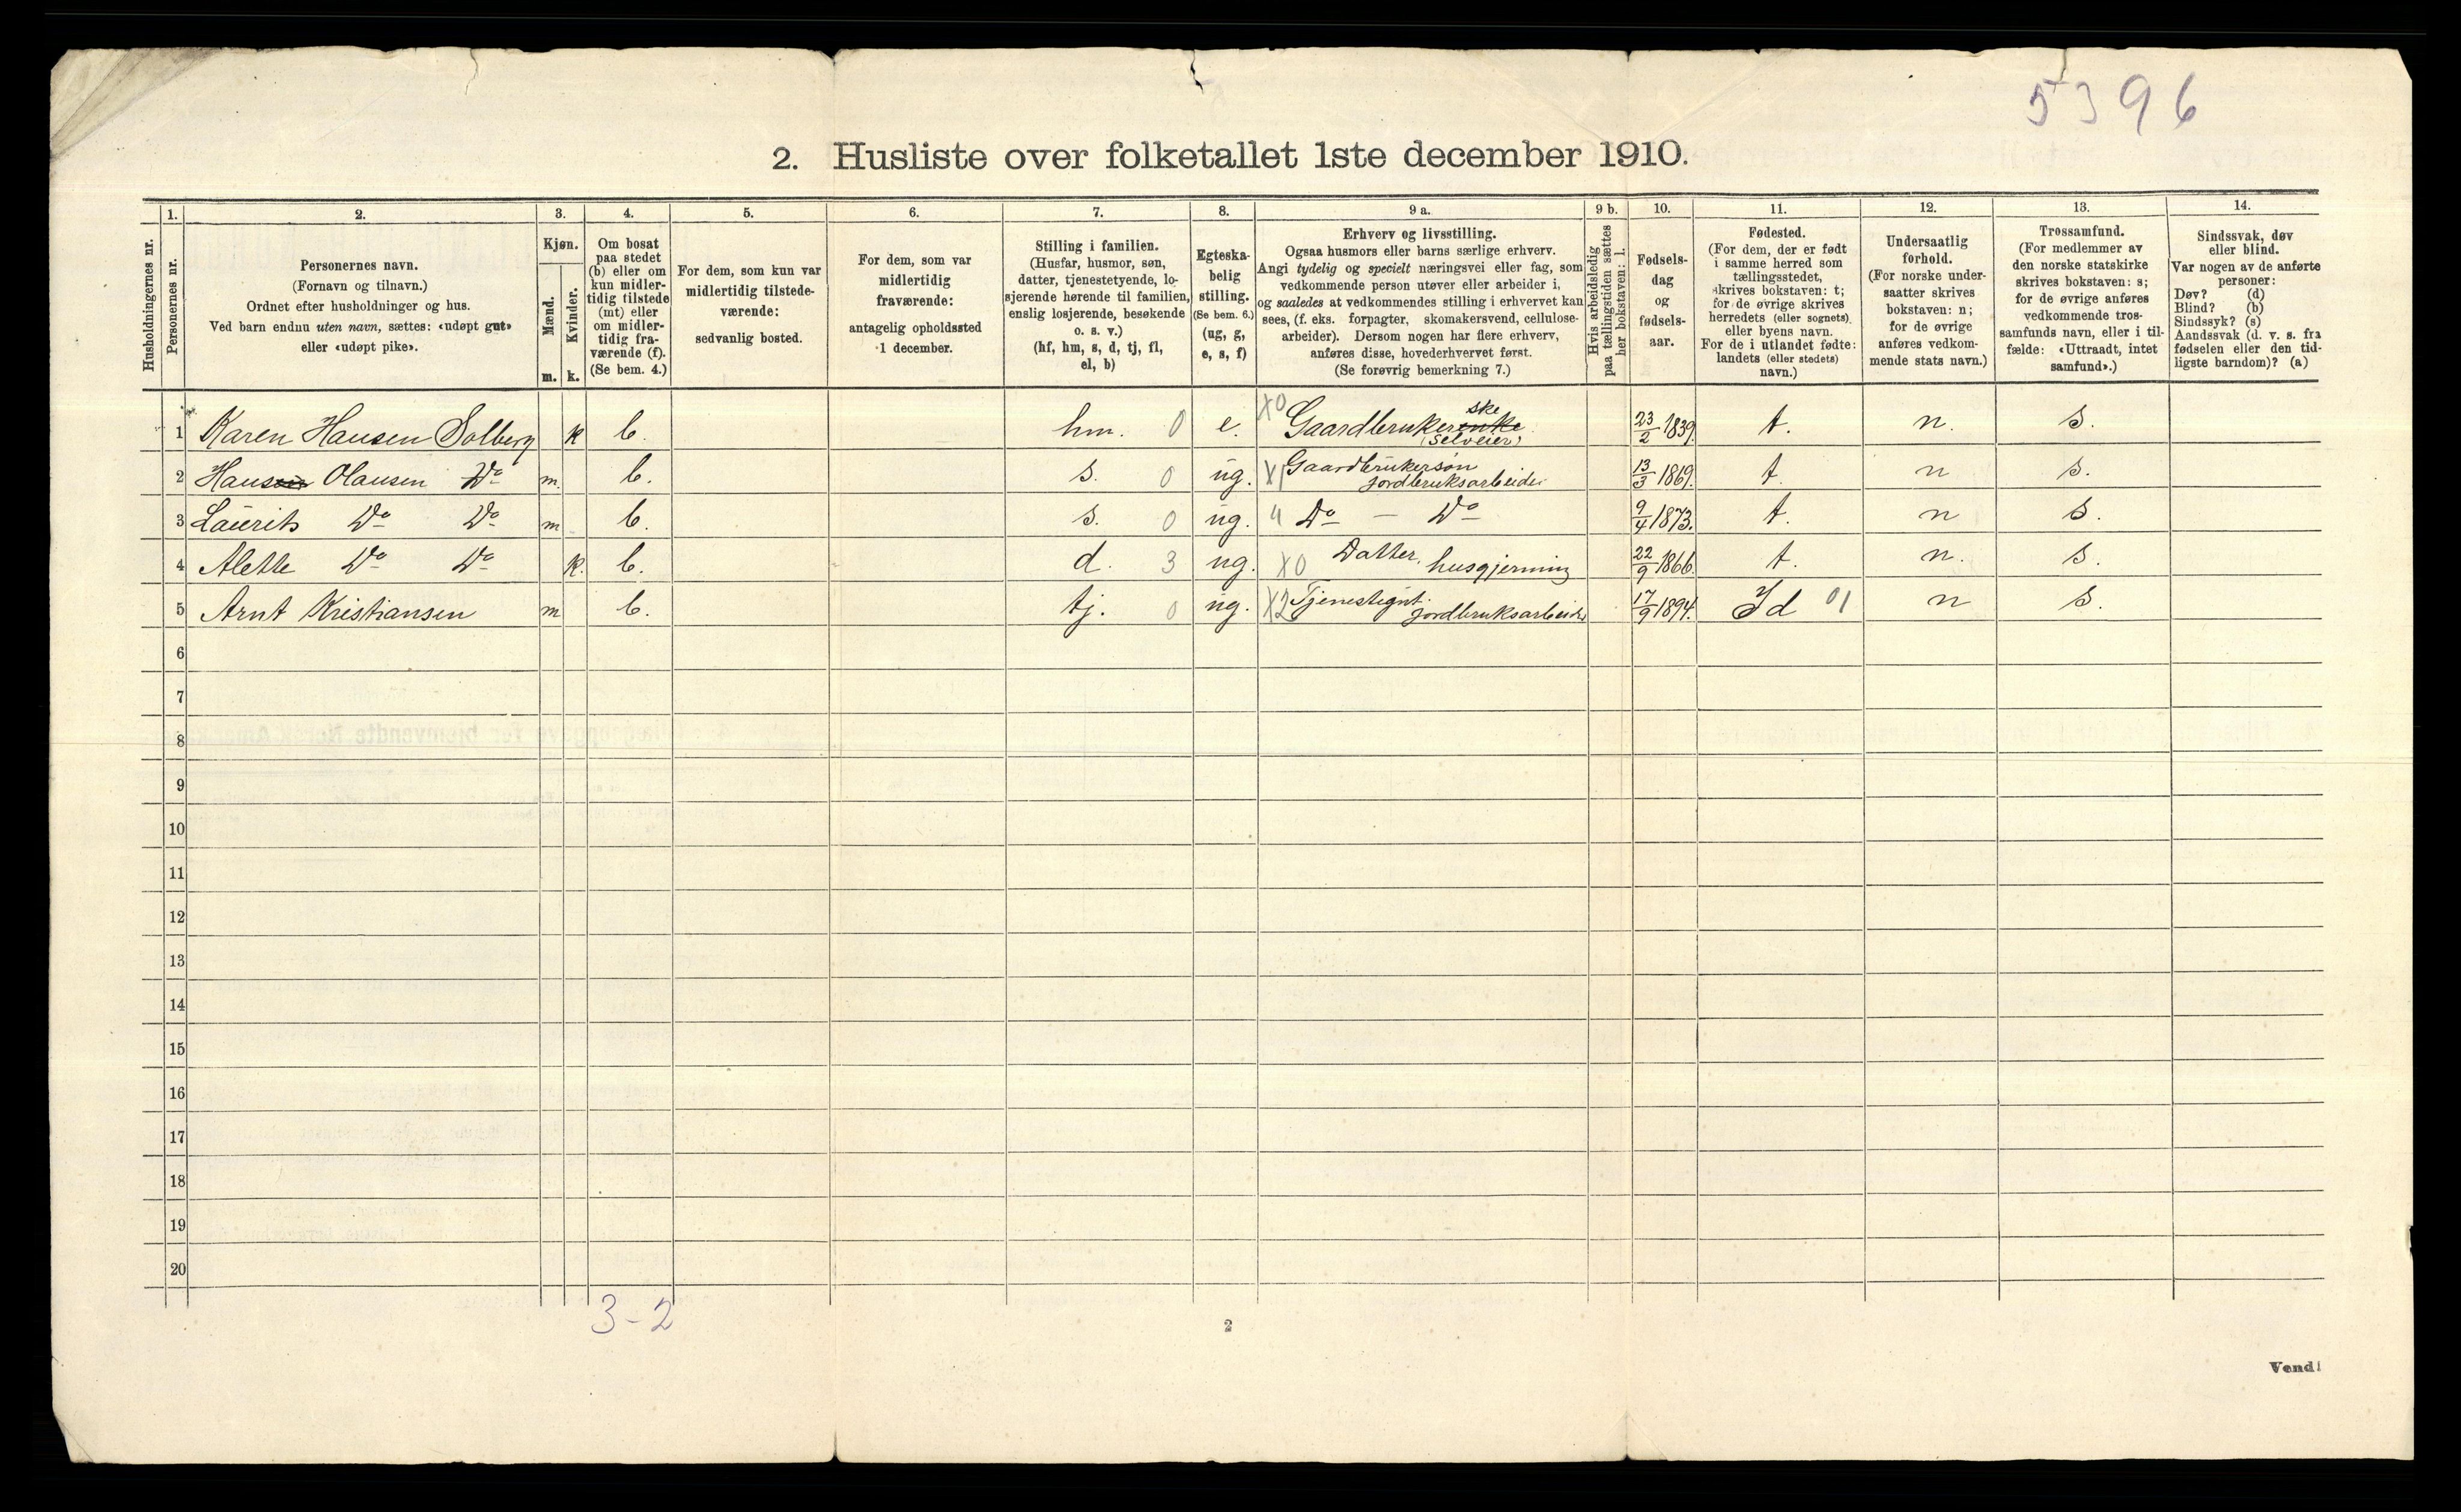 5396
2. Husliste over folketallet 1ste december 1910.
Husholdningernes nr.
1.
Personernes nr.
2.
Personernes navn.
(Fornavn og tilnavn.)
Ordnet efter husholdninger og hus.
Ved barn endnu uten navn, sættes: «udøpt gut»
eller «udøpt pike».
3.
Kjøn.
Mænd.
Kvinder.
m. k.
4.
Om bosat
paa stedet
(b) eller om
kun midler-
tidig tilstede
(mt) eller
om midler-
tidig fra-
værende (f).
(Se bem. 4.)
5.
For dem, som kun var
midlertidig tilstede-
værende:
sedvanlig bosted.
6.
For dem, som var
midlertidig
fraværende:
antagelig opholdssted
1 december.
7.
Stilling i familien.
(Husfar, husmor, søn,
datter, tjenestetyende, lo-
sjerende hørende til familien,
enslig losjerende, besøkende
o. s. v.)
(hf, hm, s, d, tj, fl,
el, b)
8.
Egteska-
belig
stilling.
(Se bem. 6.)
(ug, g,
e, s, f)
9 a.
Erhverv og livsstilling.
Ogsaa husmors eller barns særlige erhverv.
Angi tydelig og specielt næringsvei eller fag, som
vedkommende person utøver eller arbeider i,
og saaledes at vedkommendes stilling i erhvervet kan
sees, (f. eks. forpagter, skomakersvend, cellulose-
arbeider). Dersom nogen har flere erhverv,
anføres disse, hovederhvervet først.
(Se forøvrig bemerkning 7.)
9 b.
Hvis arbeidsledig
paa tællingstiden sættes
her bokstaven: l.
10.
Fødsels-
dag
og
fødsels-
aar.
11.
Fødested.
(For dem, der er født
i samme herred som
tællingsstedet,
skrives bokstaven: t;
for de øvrige skrives
herredets (eller sognets)
eller byens navn.
For de i utlandet fødte:
landets (eller stedets)
navn.)
12.
Undersaatlig
forhold.
(For norske under-
saatter skrives
bokstaven: n;
for de øvrige
anføres vedkom-
mende stats navn.)
13.
Trossamfund.
(For medlemmer av
den norske statskirke
skrives bokstaven: s;
for de øvrige anføres
vedkommende tros-
samfunds navn, eller i til-
fælde: «Uttraadt, intet
samfund».)
14.
Sindssvak, døv
eller blind.
Var nogen av de anførte
personer:
Døv? (d)
Blind? (b)
Sindssyk? (s)
Aandssvak (d. v. s. fra
fødselen eller den tid-
ligste barndom)? (a)
1 Karen Hansen Solberg k b. hm. 0 e. X0 Gaardbrukerenke ske (selveier) 23/2 1839. t. n. s.
2 Hansen Olausen Do m. b. s. 0 ug. X1 Gaardbrukersøn jordbruksarbeider 13/3 1869. t. n s.
3 Laurits Do Do m b. s. 0 ug. " Do — Do 9/4 1873. t. n s.
4 Alette Do Do k. b. d. 3 ug. X0 Datter, husgjerning 22/9 1866. t. n. s.
5 Arnt Kristiansen m b. tj. 0 ug. X2 Tjenestegut. jordbruksarbeider 17/9 1894. Id 01 n s.
6
7
8
9
10
11
12
13
14
15
16
17
18
19
20
3-2
2
Vend!